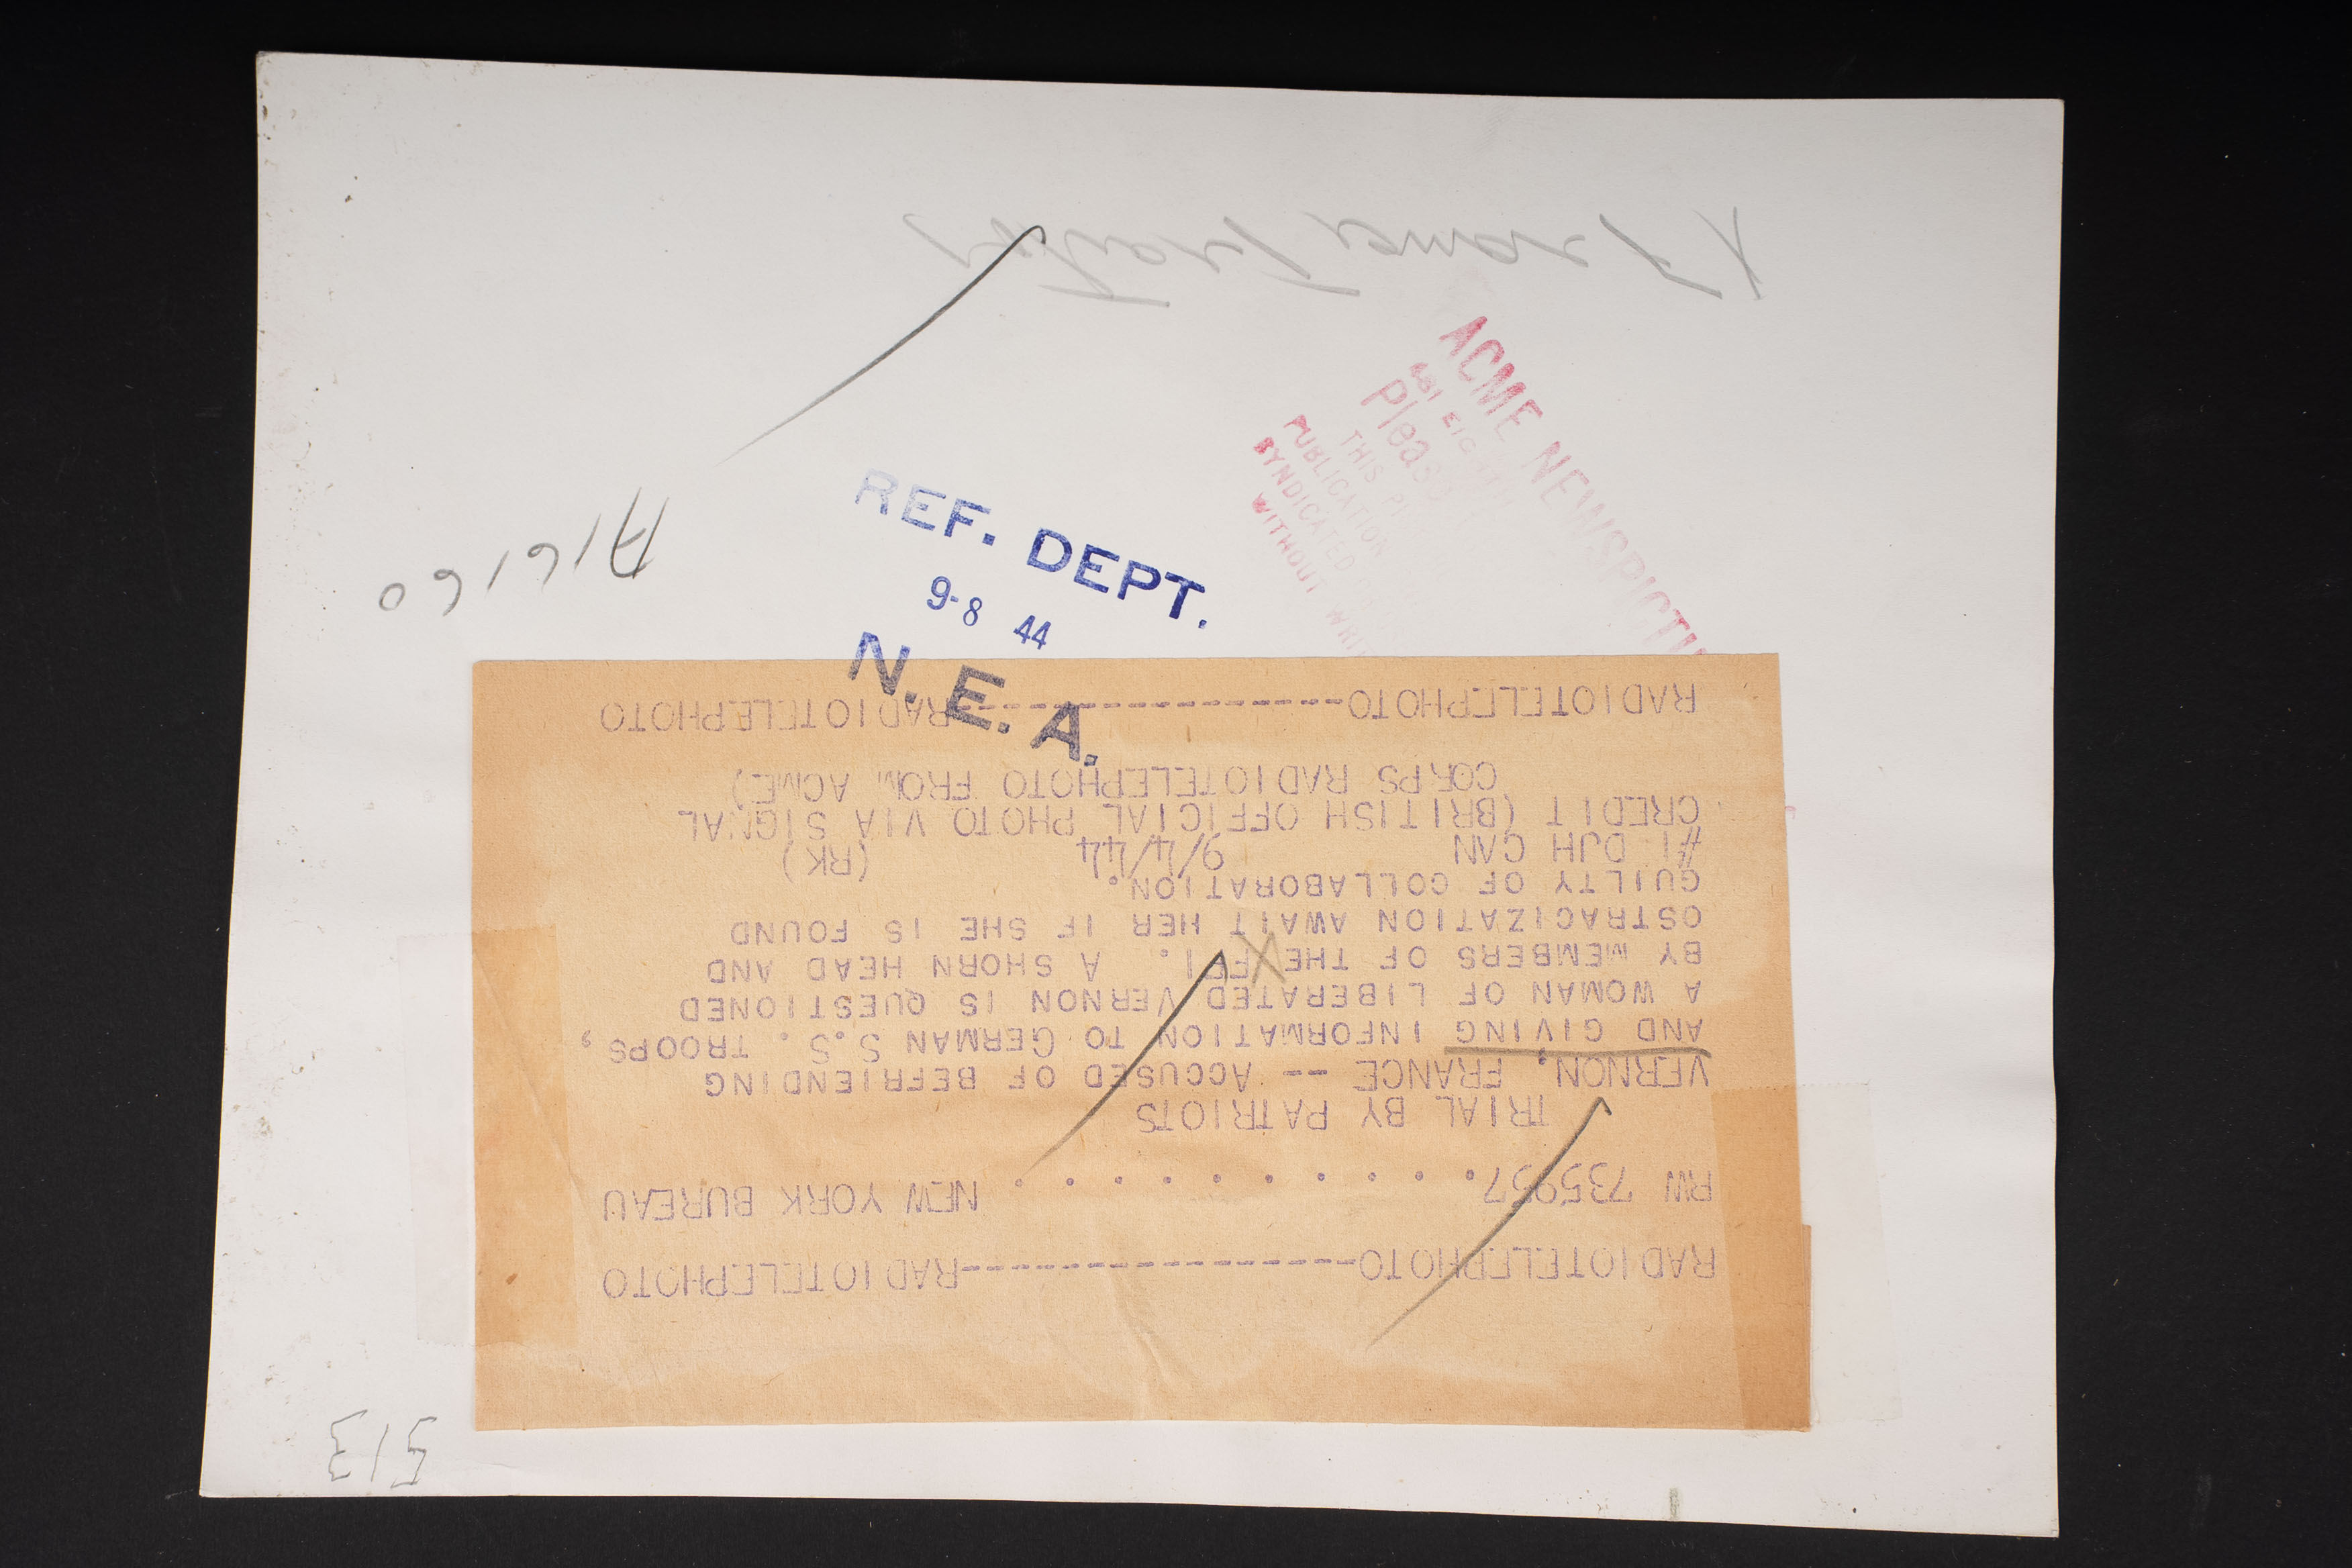 X France, Traitors
ACME NEWSPICTU
461 EIG
Please
THIS P
PUBLICATION
SYNDICATED
WITHOUT WRIT
REF. DEPT.
9-8 44
N. E. A.
A16160
RADIOTELEPHOTO-----------------RADIOTELEPHOTO
RW 735957. . . . . . . . . . NEW YORK BUREAU
TRIAL BY PATRIOTS
VERNON, FRANCE -- ACCUSED OF BEFRIENDING
AND GIVING INFORMATION TO GERMAN S.S. TROOPS,
A WOMAN OF LIBERATED VERNON IS QUESTIONED
BY MEMBERS OF THE FFI. A SHORN HEAD AND
OSTRACIZATION AWAIT HER IF SHE IS FOUND
GUILTY OF COLLABORATION.
#1 DJH CAN 9/4/44 (RK)
CREDIT (BRITISH OFFICIAL PHOTO VIA SIGNAL
CORPS RADIOTELEPHOTO FROM ACME)
RADIOTELEPHOTO-----------------RADIOTELEPHOTO
513